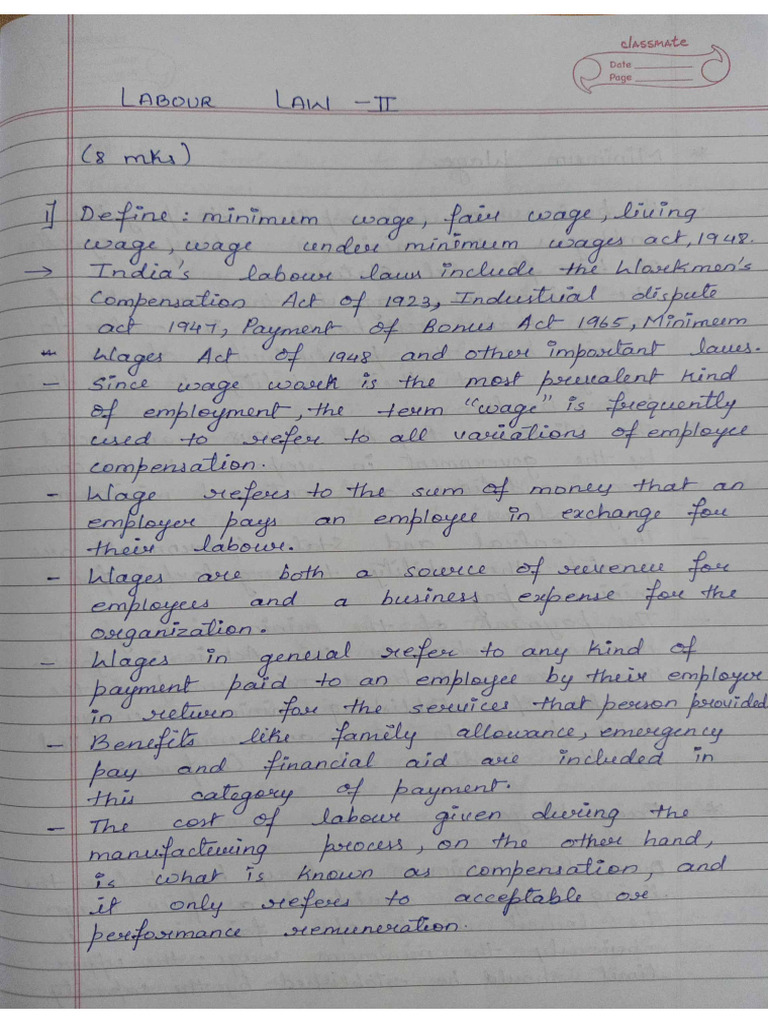 classmate
Date
Page
LABOUR LAW - II
(8 mks)
1] Define : minimum wage, fair wage, living
wage, wage under minimum wages act, 1948.
→ India's labour laws include the Workmen's
Compensation Act of 1923, Industrial dispute
act 1947, Payment of Bonus Act 1965, Minimum
Wages Act of 1948 and other important laws.
- Since wage work is the most prevalent kind
of employment, the term "wage" is frequently
used to refer to all variations of employee
compensation.
- Wage refers to the sum of money that an
employer pays an employee in exchange for
their labour.
- Wages are both a source of revenue for
employees and a business expense for the
organization.
- Wages in general refer to any kind of
payment paid to an employee by their employer
in return for the services that person provided
- Benefits like family allowance, emergency
pay and financial aid are included in
this category of payment.
- The cost of labour given during the
manufacturing process, on the other hand,
is what is known as compensation, and
it only refers to acceptable or
performance remuneration.